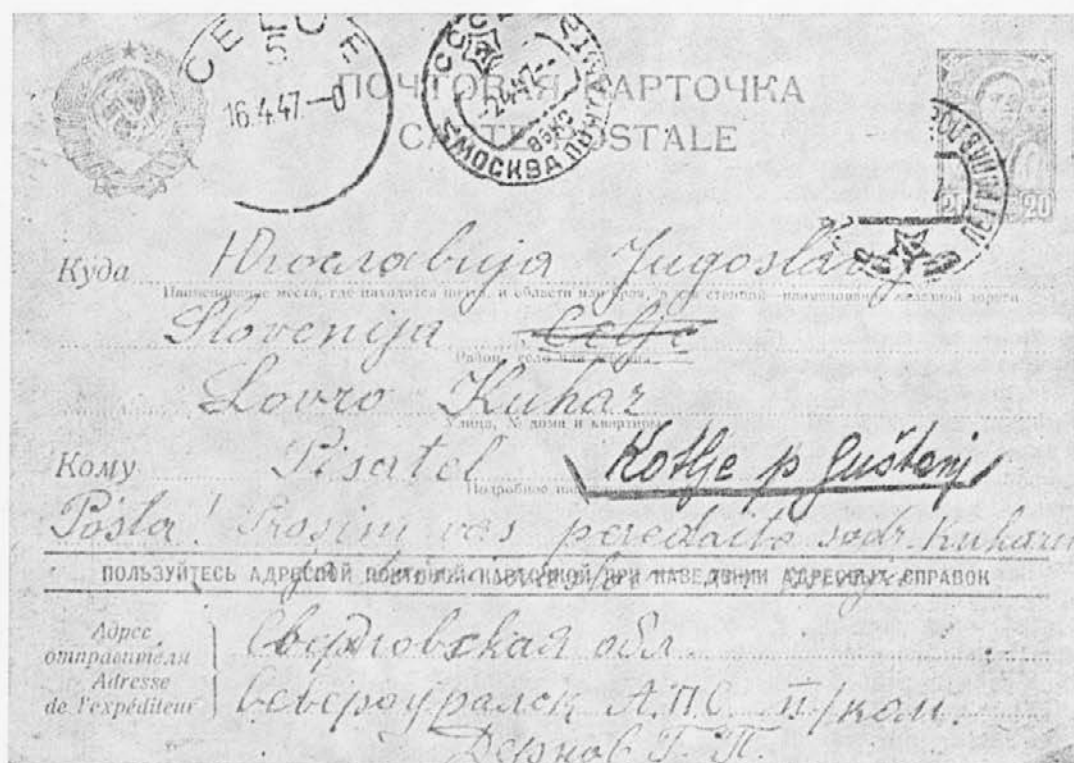 16.4.47—0
СССР
2 4 47
МОСКВА
ПОЧТОВАЯ КАРТОЧКА
CARTE POSTALE
20 20
Куда Югославија Jugoslav
Наименование места, где находится почта, и области или края, а для станций—наименование железной дороги
Slovenija Celje
Район, село или деревня
Lovro Kuhar
Улица, № дома и квартиры
Кому Pisatel Kotlje p Guštanj
Подробное
Pošta! Prosim vas peredaite sodr. Kuharu
ПОЛЬЗУЙТЕСЬ АДРЕСНОЙ ПОЧТОВОЙ КАРТОЧКОЙ ПРИ НАВЕДЕНИИ АДРЕСНЫХ СПРАВОК
Адрес отправителя Свердловская обл
Adresse de l'expéditeur Североуралск А.П.С. II/ком.
Дернов Г. П.